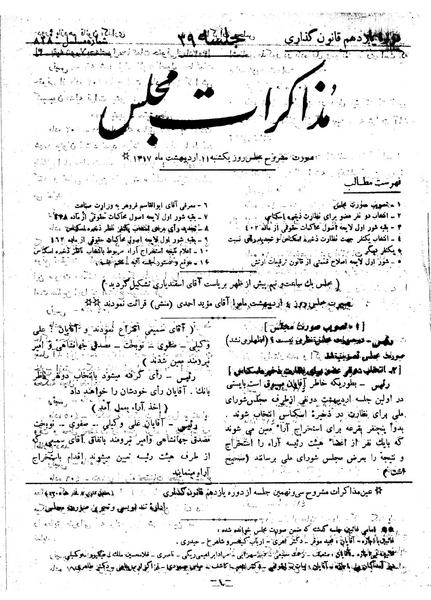 یازدهم قانون گذاری
جلسه ۳۹
شماره مسلسل: ۸۲۸
مذاکرات مجلس
صورت مشروح مجلس روز یکشنبه ۱۱ اردیبهشت ماه ۱۳۱۷
فهرست مطالب
۱ - تصویب صورت مجلس
۲ - انتخاب دو نفر عضو برای نظارت ذخیره اسکناس
۳ - بقیه شور اول لایحه اصول محاکمات حقوقی از ماده ۴۰۲
۴ - انتخاب یکنفر جهت نظارت ذخیره اسکناس و تجدید رأی نسبت
به یکنفر دیگر
۵ - شور اول لایحه اصلاح قسمتی از قانون ترفیعات ارتش
۶ - معرفی آقای ابوالقاسم فروهر به وزارت صناعت
۷ - بقیه شور اول لایحه اصول محاکمات حقوقی از ماده ۴۴۸
۸ - تجدید رأی برای انتخاب یکنفر ناظر ذخیره اسکناس
۹ - بقیه شور اول لایحه اصول محاکمات حقوقی از ماده ۴۶۲
۱۰ - اعلام نتیجه استخراج آراء مربوط بانتخاب ناظر ذخیره اسکناس
۱۱ - موقع و دستور جلسه آتیه - ختم جلسه
(مجلس یک ساعت و نیم پیش از ظهر بریاست آقای اسفندیاری تشکیل گردید)
صورت مجلس روز اردیبهشت ماه را آقای مؤید احمدی (منشی) قرائت نمودند
[۱ - تصویب صورت مجلس]
رئیس - در صورت مجلس نظری نیست؟ (اظهاری نشد)
صورت مجلس تصویب شد
[۲ - انتخاب دو نفر عضو برای نظارت ذخیره اسکناس]
رئیس - بطوریکه خاطر آقایان مسبوق است بایستی
در اولین جلسه اردیبهشت دو نفر از طرف مجلس شورای
ملی برای نظارت در ذخیره اسکناس انتخاب شوند.
بدواً پنج نفر بقرعه برای استخراج آراء معین میشوند
که با یک نفر از اعضاء هیئت رئیسه آراء را استخراج
و نتیجه را بعرض مجلس شورای ملی برسانند (صحیح
است)
(آقای سمیعی اقتراع نمودند و آقایان: علی
وکیلی - صفوی - نوبخت - مصدق جهانشاهی و امیر
نیرومند معین شدند)
رئیس - رأی گرفته میشود بانتخاب دو نفر ناظر
بانک. آقایان رأی خودشان را خواهند داد
(اخذ آراء بعمل آمد)
رئیس - آقایان علی وکیلی - صفوی - نوبخت
مصدق جهانشاهی و امیر نیرومند باتفاق آقای سمیعی که
از طرف هیئت رئیسه معین میشوند اقدام باستخراج
آراء مینمایند
عین مذاکرات مشروح سی و نهمین جلسه از دوره یازدهم قانون گذاری
اداره تند نویسی و تحریر صورت مجلس
اسامی غائبین جلسه گذشته که ضمن صورت مجلس خوانده شده:
- ۱ -